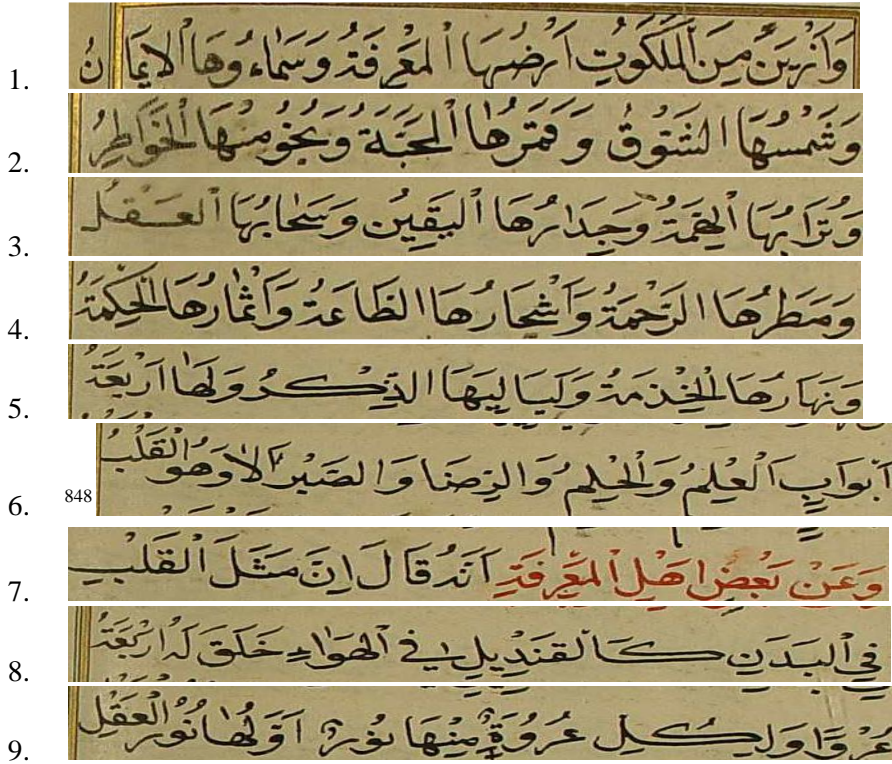 1. وَاَزْيَنُ مِنَ الْمَلَكُوتِ اَرْضُهَا الْمَعْرِفَةُ وَسَمَاءُوهَا الْاِيمَانُ
2. وَشَمْسُهَا الشَّوْقُ وَقَمَرُهَا الْمَحَبَّةُ وَنُجُومُهَا الْخَوَاطِرُ
3. وَتُرَابُهَا الْهِمَّةُ وَجِدَارُهَا الْيَقِينُ وَسَحَابُهَا الْعَقْلُ
4. وَمَطَرُهَا الرَّحْمَةُ وَاَشْجَارُهَا الطَّاعَةُ وَاَثْمَارُهَا الْحِكْمَةُ
5. وَنَهَارُهَا الْخِدْمَةُ وَلَيَالِيهَا الذِّكْرُ وَلَهَا اَرْبَعَةُ
6. 848 اَبْوَابٍ الْعِلْمُ وَالْحِلْمُ وَالرِّضَا وَالصَّبْرُ اَلَا وَهُوَ الْقَلْبُ
7. وَعَنْ بَعْضِ اَهْلِ الْمَعْرِفَةِ اَنَّهُ قَالَ اِنَّ مَثَلَ الْقَلْبِ
8. فِي الْبَدَنِ كَالْقَنْدِيلِ فِي الْهَوَاءِ خَلَقَ لَهُ اَرْبَعَةَ
9. عُرْوًا وَلِكُلِّ عُرْوَةٍ مِنْهَا نُورٌ اَوَّلُهَا نُورُ الْعَقْلِ